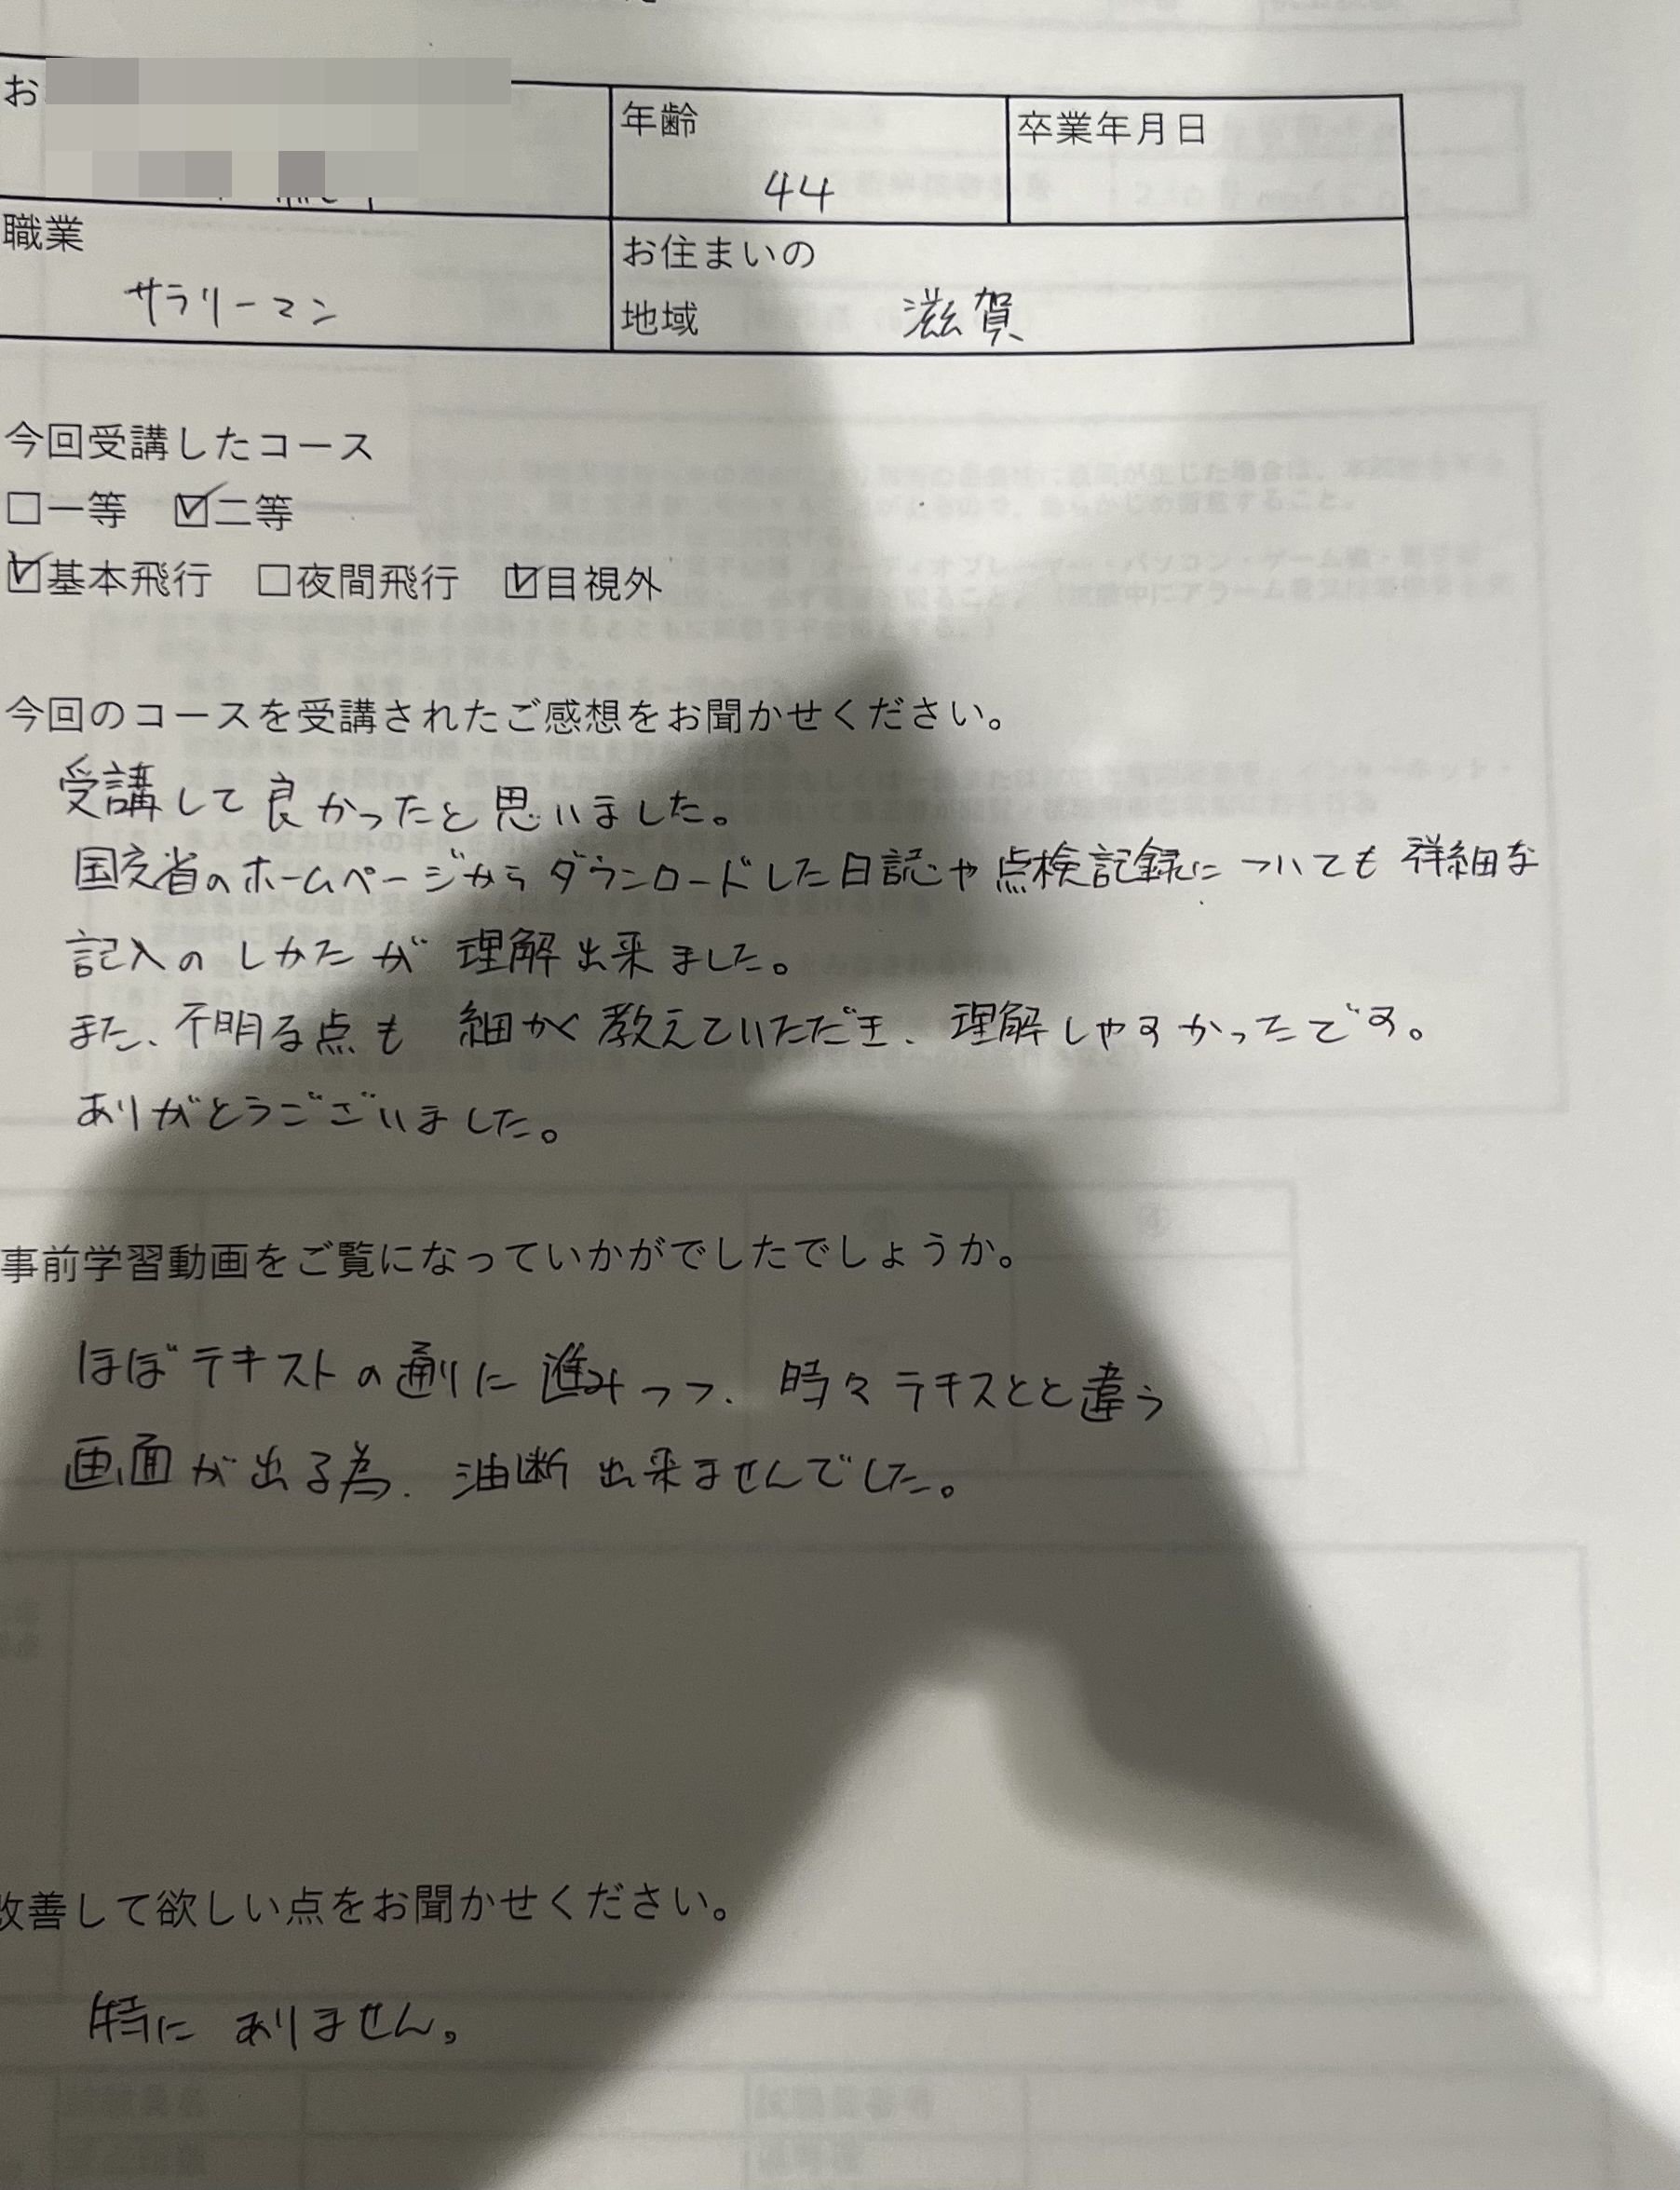 お
年齢
44
卒業年月日
職業
サラリーマン
お住まいの
地域
滋賀
今回受講したコース
□一等 ☑二等
☑基本飛行 □夜間飛行 ☑目視外
今回のコースを受講されたご感想をお聞かせください。
受講して良かったと思いました。
国交省のホームページからダウンロードした日記や点検記録についても詳細な
記入のしかたが理解出来ました。
また、不明る点も細かく教えていただき、理解しやすかったです。
ありがとうございました。
事前学習動画をご覧になっていかがでしたでしょうか。
ほぼテキストの通りに進みつつ、時々テキストと違う
画面が出る為、油断出来ませんでした。
改善して欲しい点をお聞かせください。
特にありません。